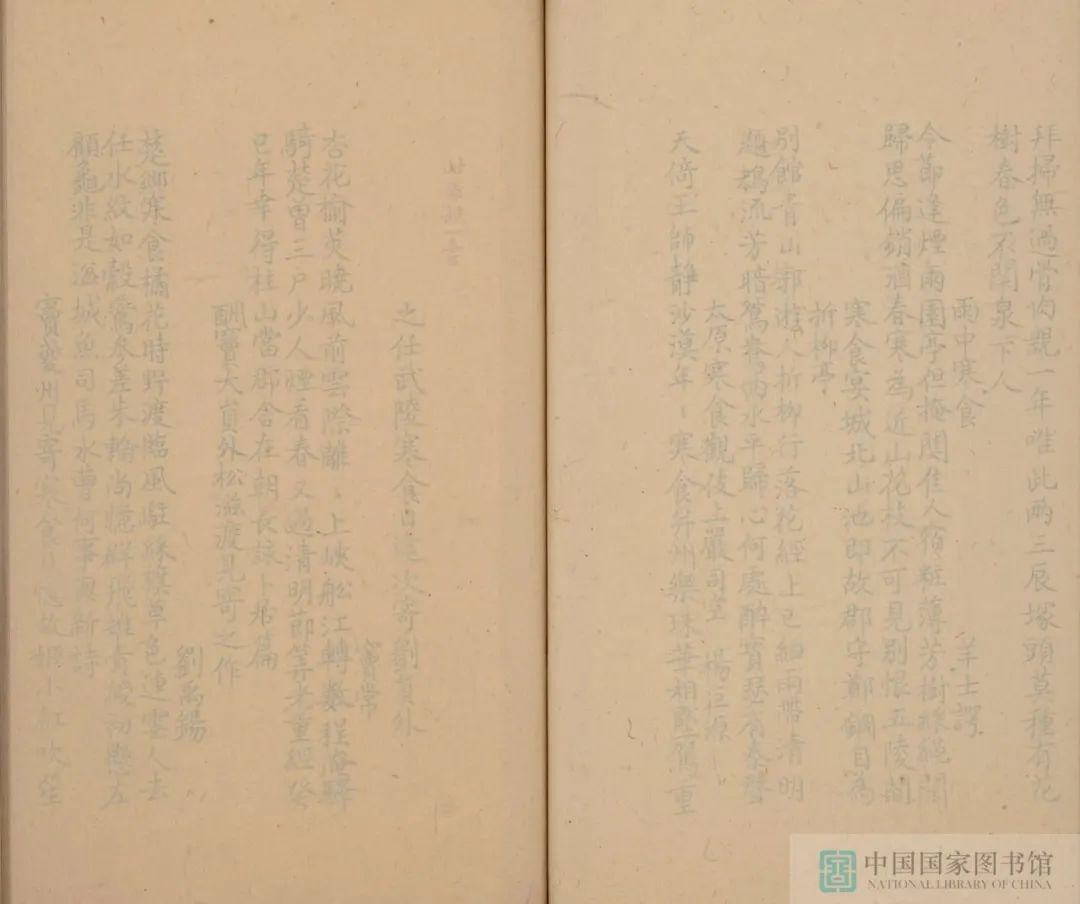 拜掃無過骨肉親一年唯此兩三辰塚頭莫種有花
樹春色不關泉下人
雨中寒食
羊士諤
令節逢煙雨園亭但掩關佳人宿粧薄芳樹綵繩閒
歸思偏銷酒春寒為近山花枝不可見別恨五陵間
寒食宴城北山池即故郡守鄭鋼目為
折柳亭
別館青山郭遊人折柳行落花經上巳細雨帶清明
鶗鴂流芳暗鴛鴦曲水平歸心何處醉寶瑟有秦聲
太原寒食觀伎上嚴司空
楊巨源
天倚王師靜沙漠年ミ寒食并州樂珠華相壓駕重
之任武陵寒食日途次寄劉員外
竇常
杏花榆莢曉風前雲際離ミ上峽船江轉數程淹驛
騎楚曾三戶少人煙看春又過清明節筭老重經癸
巳年幸得柱山當郡舍在朝長詠卜居篇
酬竇大員外松滋渡見寄之作
劉禹錫
楚鄉寒食橘花時野渡臨風駐綵旗草色連雲人去
任水紋如縠鷰參差朱輪尚憶群飛雉青綬初懸左
顧龜非是湓城魚司馬水曹何事與新詩
竇夔州見寄寒食日憶故姬小紅吹笙